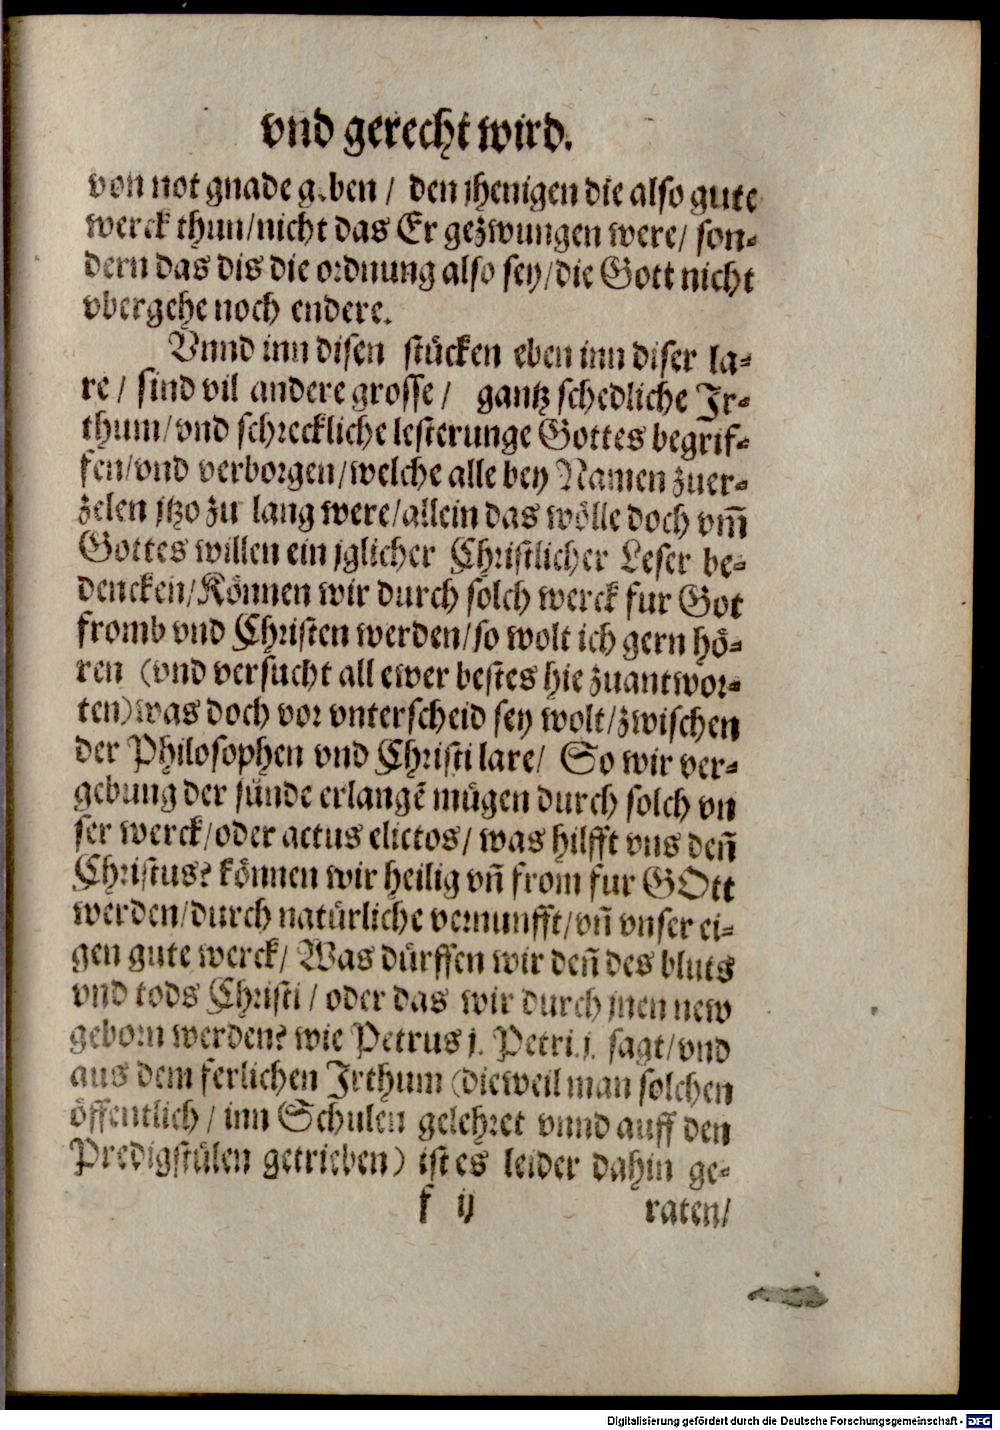 vnd gerecht wird.
von not gnade geben / den jhenigen die also gute
werck thun/nicht das Er gezwungen were/ son⸗
dern das dis die ordnung also sey/die Gott nicht
vbergehe noch endere.
Vnnd inn disen stücken eben inn diser la⸗
re / sind vil andere grosse / gantz schedliche Jr⸗
thum/vnd schreckliche lesterunge Gottes begrif⸗
fen/vnd verborgen/welche alle bey Namen zuer⸗
zelen jtzo zu lang were/allein das wölle doch vm̃
Gottes willen ein jglicher Christlicher Leser be⸗
dencken/Können wir durch solch werck fur Got
fromb vnd Christen werden/so wolt ich gern hö⸗
ren (vnd versucht all ewer bestes hie zuantwor⸗
ten) was doch vor vnterscheid sey wolt/zwischen
der Philosophen vnd Christi lare/ So wir ver⸗
gebung der sünde erlangẽ mügen durch solch vn
ser werck/oder actus elictos/ was hilfft vns deñ
Christus? können wir heilig vñ from fur GOtt
werden/durch natürliche vernunfft/vñ vnser ei⸗
gen gute werck/ Was dürffen wir deñ des bluts
vnd tods Christi / oder das wir durch jnen new
geborn werden? wie Petrus j. Petri. j. sagt/vnd
aus dem ferlichen Jrthum (dieweil man solchen
öffentlich/ inn Schulen gelehret vnnd auff den
Predigstülen getrieben) ist es leider dahin ge⸗
f ij raten/
Digitalisierung gefördert durch die Deutsche Forschungsgemeinschaft - DFG